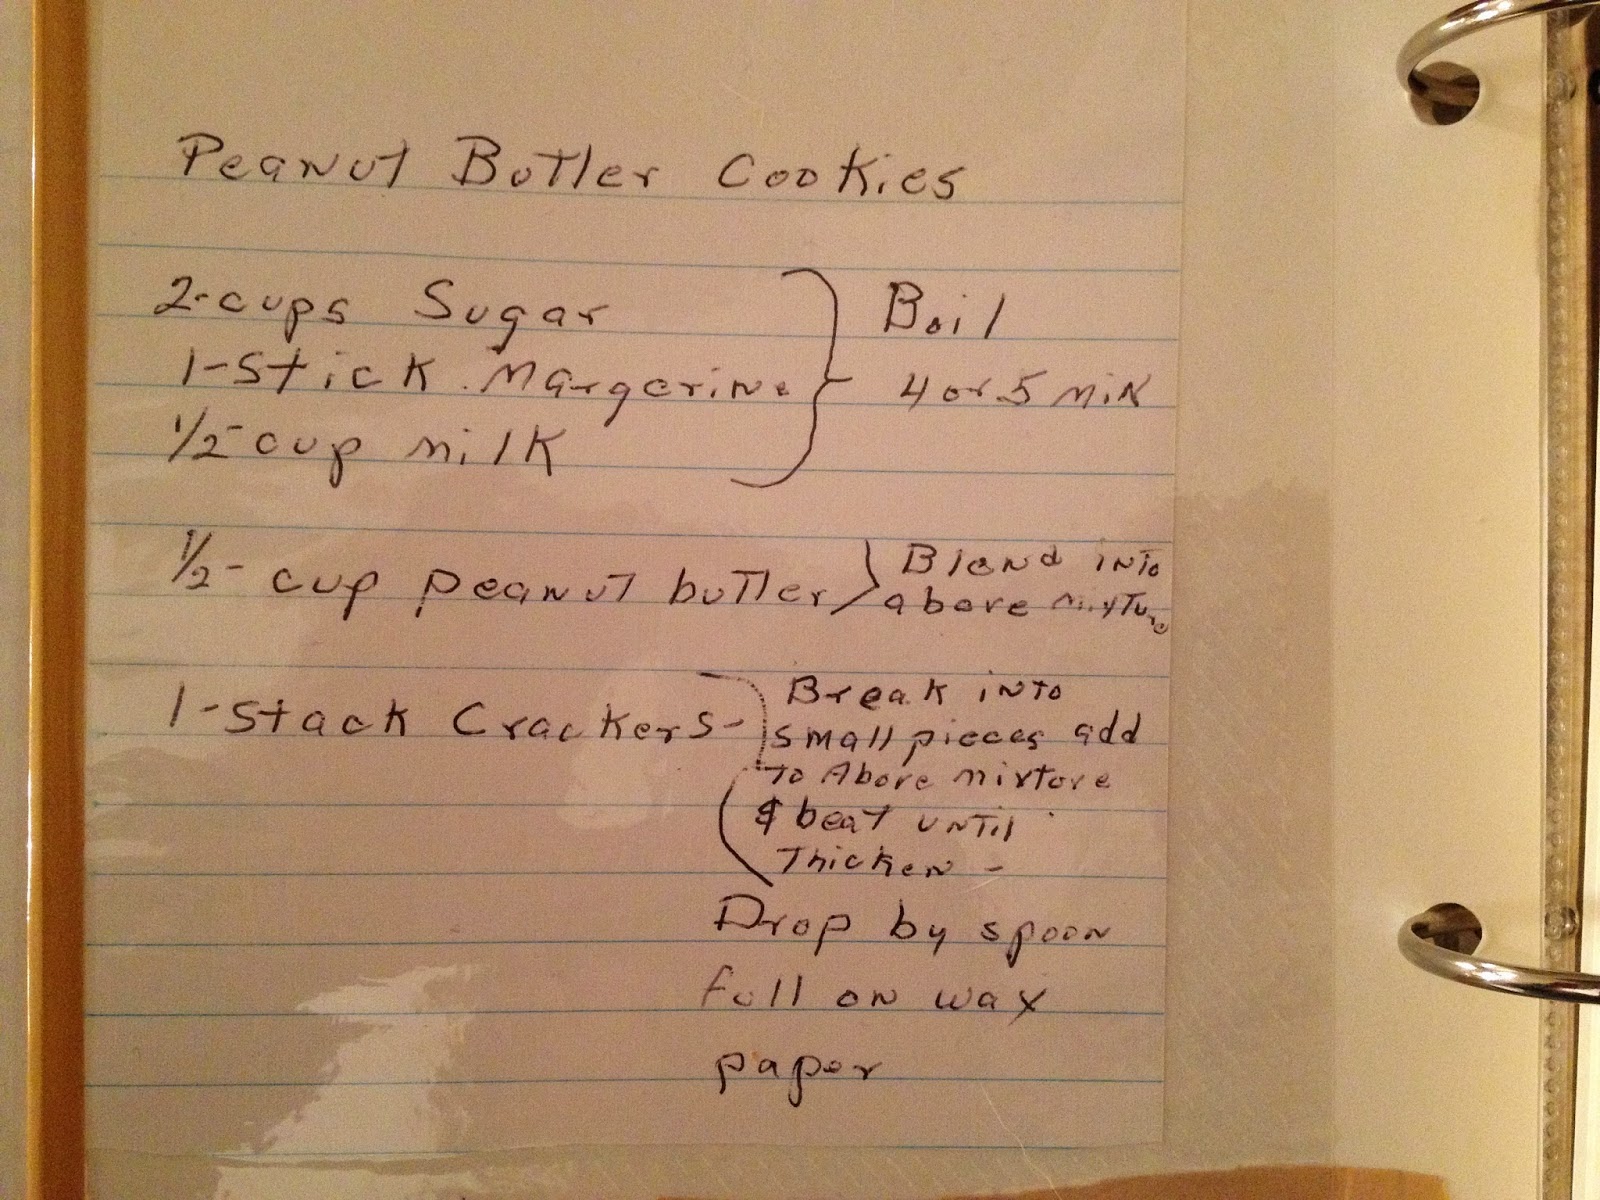 Peanut Butler Cookies
2-cups Sugar
1-stick Margerine
1/2-cup milk
Boil
4 or 5 min
1/2- cup peanut butler
Blend into
above mixture
1-stack Crackers-
Break into
small pieces add
to Above mixture
& beat until
Thicken -
Drop by spoon
full on wax
paper